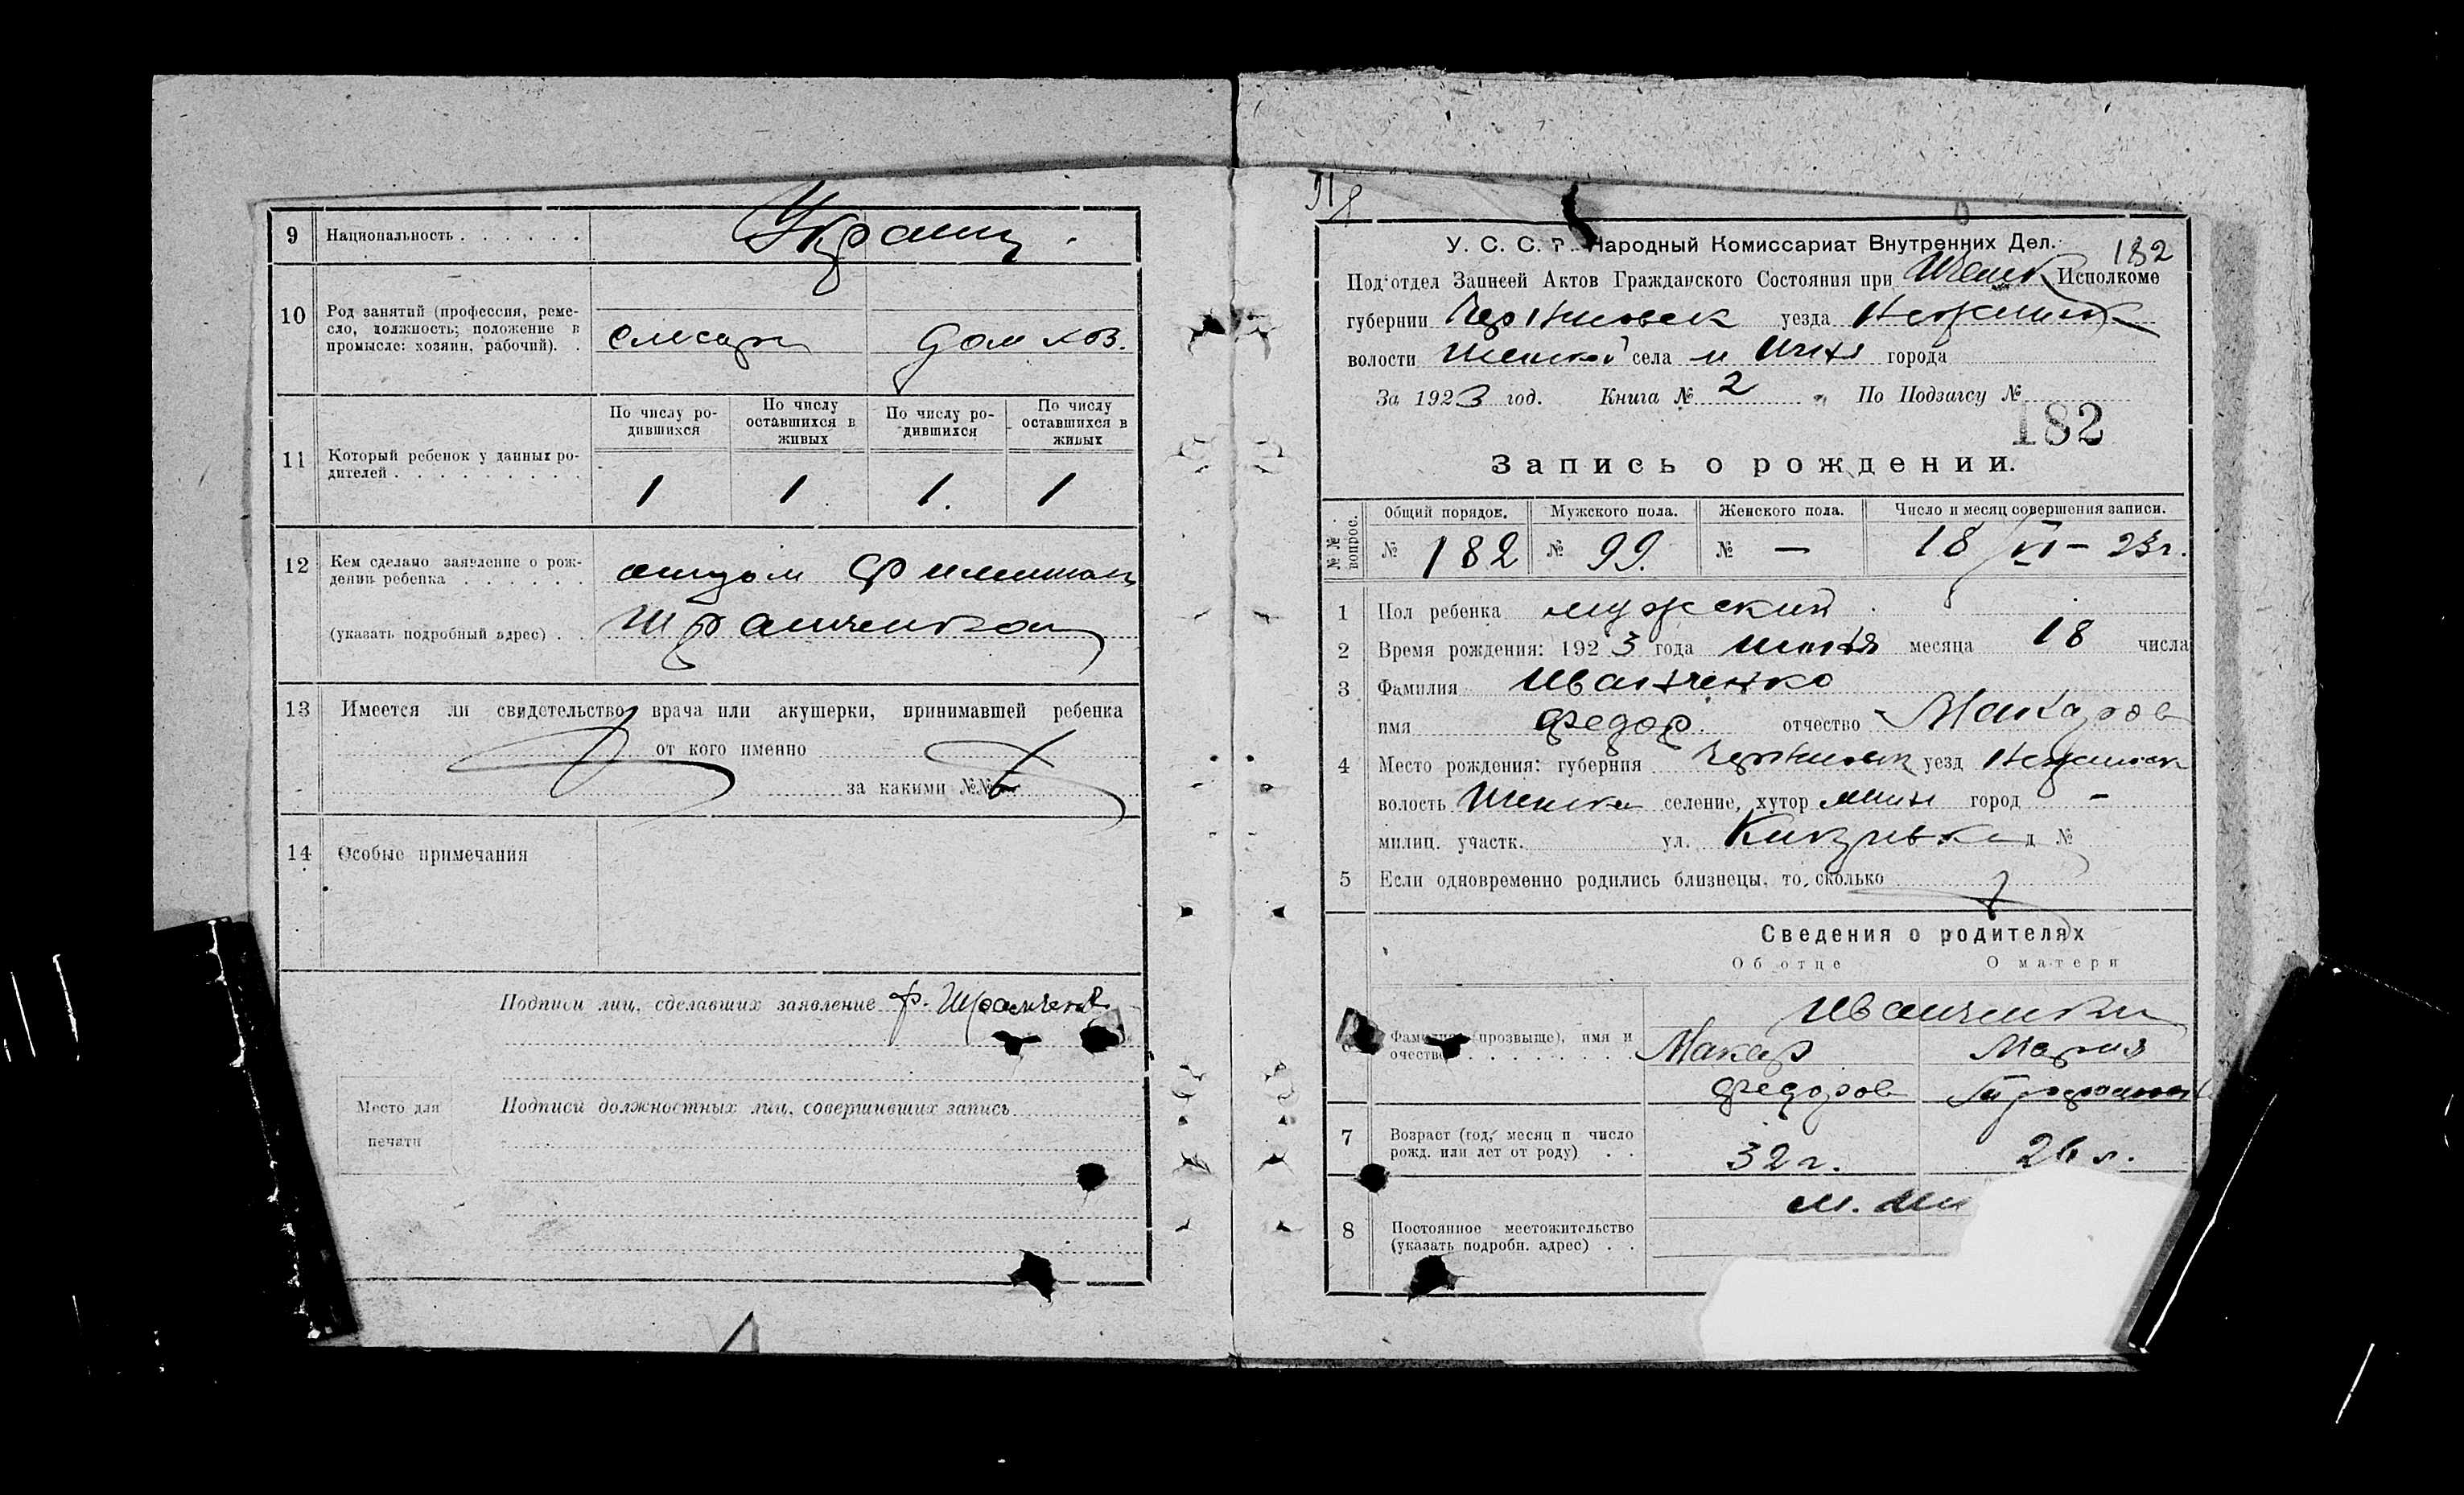 9 Национальность . . . . . . Украин.
10 Род занятий (профессия, реме-
сло, должность; положение в
промысле: хозяин, рабочий). . слесарь дом хоз.
11 Который ребенок у данных ро-
дителей . . . . . . . . .
По числу ро-
дившихся
По числу
оставшихся в
живых
По числу ро-
дившихся
По числу
оставшихся в
живых
1 1 1. 1
12 Кем сделано заявление о рож-
дении ребенка . . . . . .
(указать подробный адрес) . .
13 Имеется ли свидетельство врача или акушерки, принимавшей ребенка
от кого именно
за какими №№
14 Особые примечания
Подписи лиц, сделавших заявление Ф.
Место для
печати
Подписи должностных лиц, совершивших запись
У. С. С. Р. Народный Комиссариат Внутренних Дел.
182
Под'отдел Записей Актов Гражданского Состояния при Ичен Исполкоме
губернии Черниговск уезда Нежинск
волости Иченской села м Ичня города
За 1923 год. Книга № 2 По Подзагсу №
182
Запись о рождении.
№№ вопрос.
Общий порядок. Мужского пола. Женского пола. Число и месяц совершения записи.
№ 182 № 99. № — 18/VI – 23 г.
1 Пол ребенка мужский
2 Время рождения: 1923 года июня месяца 18 числа
3 Фамилия Иванченко
имя Федор. отчество Макаров
4 Место рождения: губерния Черниговск уезд Нежинск
волость Иченска селение, хутор м Ичн город –
милиц. участк. ул. д №
5 Если одновременно родились близнецы, то, сколько
Сведения о родителях
Об отце О матери
6 Фамилия (прозвыще), имя и
очество . . . . . . . .
Иванченки
Макар Мария
Федоров
7 Возраст (год, месяц и число
рожд. или лет от роду) . . 32 г. 26 л.
8 Постоянное местожительство
(указать подробн. адрес) . . м. Ич